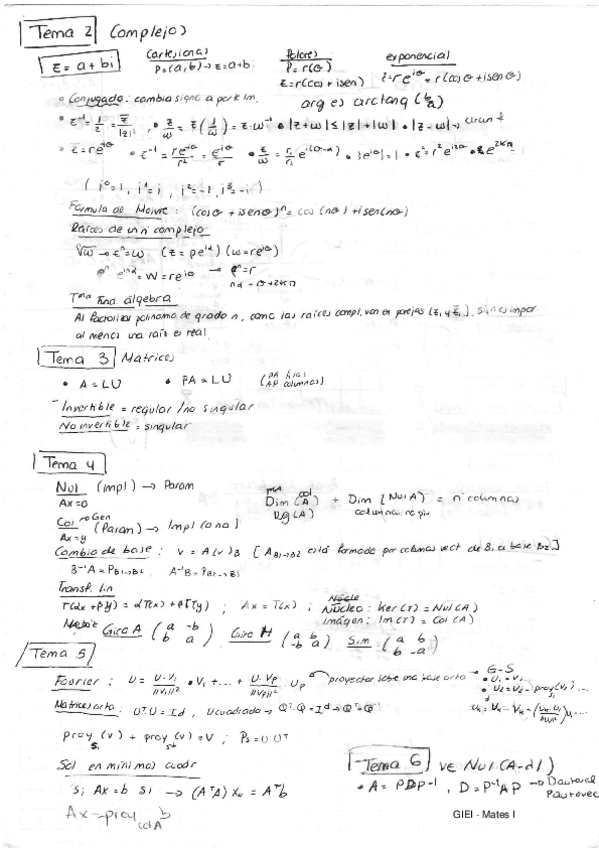 Tema 2 Complejos
z = a + bi
Cartesiana
P=(a,b) → z=a+bi
Polares
P = r(θ)
z=r(cos+isen)
exponencial
z=re^iθ = r(cosθ + isenθ)
• Conjugado: cambia signo a parte Im.
arg es arctang (b/a)
• z^-1 = 1/z = z̄/|z|² , • z/w = z(1/w) = z·w^-1 • |z+w| ≤ |z|+|w| • |z-w| →
• z̄=re^-iθ • z^-1 = re^-iθ/r² = e^-iθ/r • z/w = r₁/r₂ e^i(θ-α) • |e^iθ|=1 • z²=r²e^i2θ
(i⁰=1, i¹=i, i²=-1, i³=-i)
Fórmula de Moivre: (cosθ + isenθ)^n = cos(nθ) + isen(nθ)
Raíces de un nº complejo
ⁿ√w → z^n=w (z=pe^iα) (w=re^iθ)
p^n e^inα = w = re^iθ → p^n=r
nα = θ+2kπ
Tma Fna. álgebra
Al factorizar polinomio de grado n, como las raíces compl. van en parejas (z, y z̄), si n es impar
al menos una raíz es real.
Tema 3 Matrices
• A = LU • PA = LU (PA filas)
(AP columnas)
- Invertible = regular / no singular
No invertible = singular
Tema 4
Nul (Impl) → Param
Ax=0
Dim (Col A) + Dim (Nul A) = nº columnas
Rg(A)
Col → Gen (Param) → Impl (ana)
Ax=y
Cambio de base: v = A(v)B [A B1→B2 está formada por columnas vect de B1 en base B2.]
B^-1A = P B1→B2 A^-1B = P B2→B1
Transf. lin
T(αx + βy) = αT(x) + βT(y) ; Ax = T(x) ; Núcleo: Ker(T) = Nul(A)
Imágen: Im(T) = Col(A)
Gira A (a -b / b a) Gira H (a b / -b a) Sim (a b / b -a)
Tema 5
Fourier: U = U·V₁/||V₁||² • V₁ + ... + U·Vp/||Vp||² · Up proyector sobre una base orto
G-S
• U₁ = V₁
• U₂ = V₂ - proy(V₂) ...
Matriz orto: U^T·U = Id, U cuadrada → Q^T·Q = Id → Q^T = Q^-1
proy (v) + proy (v) = v ; Ps = U·U^T
Sol en mínimos cuadr
Si Ax = b si → (A^T A) x₀ = A^T b
Ax = proy Col A b
Tema 6
v ∈ Nul (A-λI)
• A = PDP^-1, D = P^-1AP → D autoval
P autovec
GIEI - Mates I